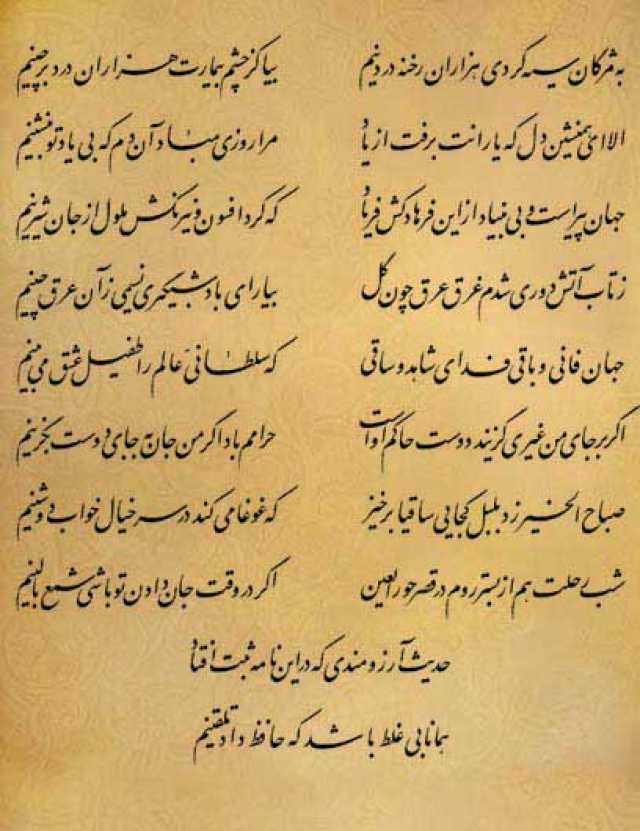 به مژگان سیه کردی هزاران رخنه در دینم بیا کز چشم بیمارت هزاران درد برچینم
الا ای همنشین دل که یارانت برفت از یاد مرا روزی مباد آن دم که بی یاد تو بنشینم
جهان پیراست و بی بنیاد از این فرهادکش فریاد که کرد افسون و نیرنگش ملول از جان شیرینم
ز تاب آتش دوری شدم غرق عرق چون گل بیار ای باد شبگیری نسیمی زآن عرق چینم
جهان فانی و باقی فدای شاهد و ساقی که سلطانی عالم را طفیل عشق می بینم
اگر بر جای من غیری گزیند دوست حاکم اوست حرامم باد اگر من جان به جای دوست بگزینم
صباح الخیر زد بلبل کجایی ساقیا برخیز که غوغا می کند در سر خیال خواب دوشینم
شب رحلت هم از بستر روم در قصر حورالعین اگر در وقت جان دادن تو باشی شمع بالینم
حدیث آرزومندی که در این نامه ثبت افتاد
همانا بی غلط باشد که حافظ داد تلقینم